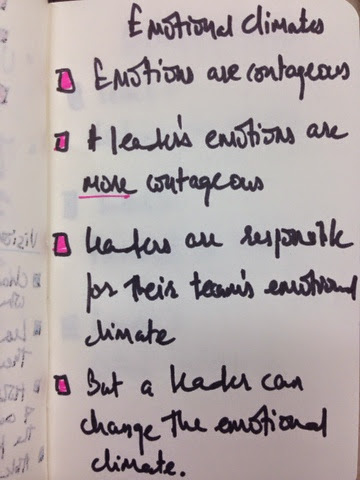 Emotional climates
Emotions are contageous
A leader's emotions are
more contageous
Leaders are responsible
for their team's emotional
climate
But a leader can
change the emotional
climate.
Vision